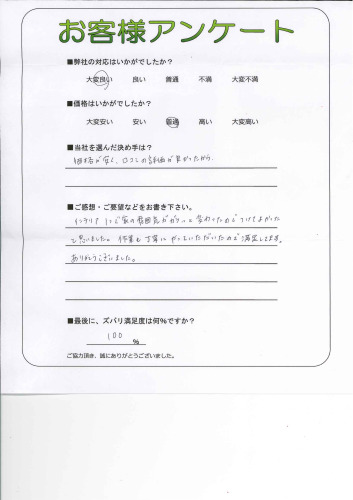 お客様アンケート
■弊社の対応はいかがでしたか？
大変良い 良い 普通 不満 大変不満
■価格はいかがでしたか？
大変安い 安い 普通 高い 大変高い
■当社を選んだ決め手は？
価格が安く、口コミの評価が良かったから。
■ご感想・ご要望などをお書き下さい。
インテリア1つで家の雰囲気がガラッと変わったのでつけてよかった
と思いました。作業も丁寧にやっていただいたので満足してます。
ありがとうございました。
■最後に、ズバリ満足度は何%ですか？
100 %
ご協力頂き、誠にありがとうございました。